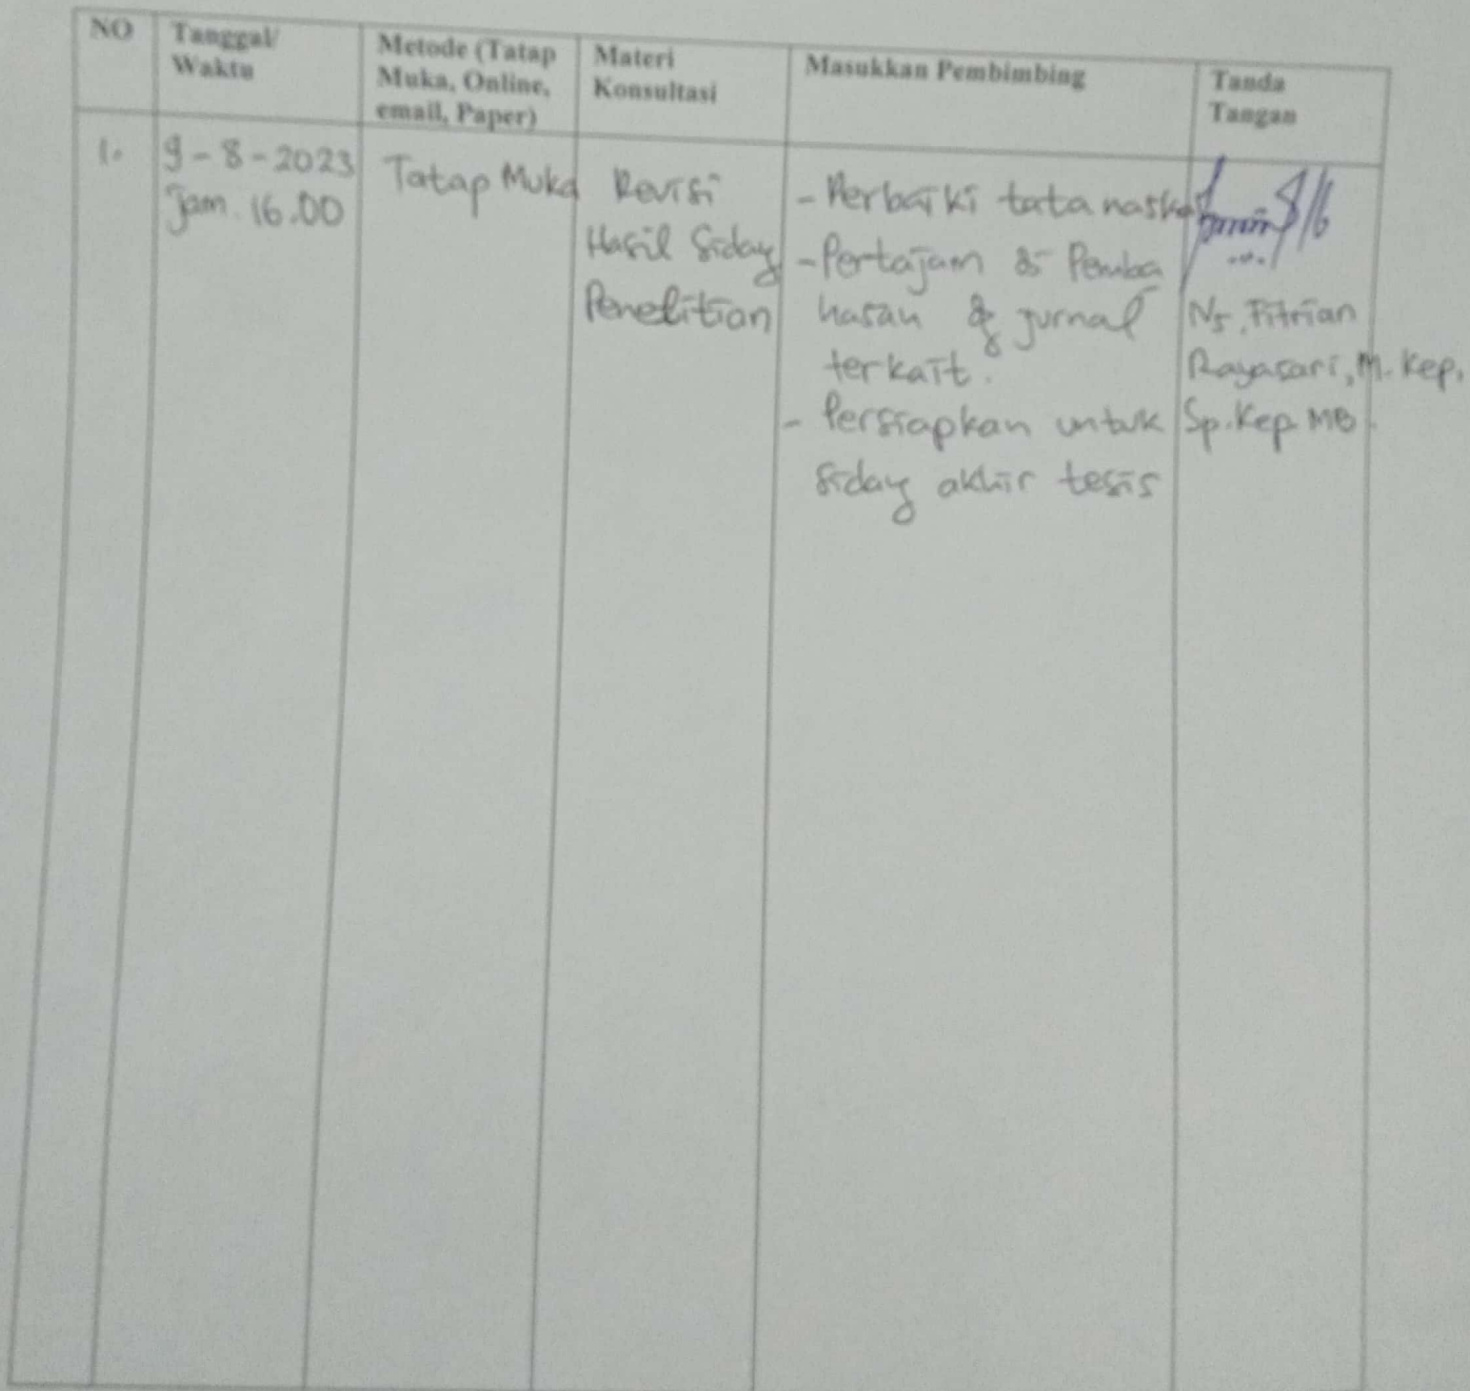 NO
Tanggal/
Waktu
Metode (Tatap
Muka, Online,
email, Paper)
Materi
Konsultasi
Masukkan Pembimbing
Tanda
Tangan
1.
9-8-2023
Jam. 16.00
Tatap Muka
Revisi
Hasil Sidang
Penelitian
- Perbaiki tata naskah
- Pertajam di Pemba
hasan & jurnal
terkait.
- Persiapkan untuk
sidang akhir tesis
Ns. Fitrian
Rayasari, M. Kep,
Sp. Kep MB